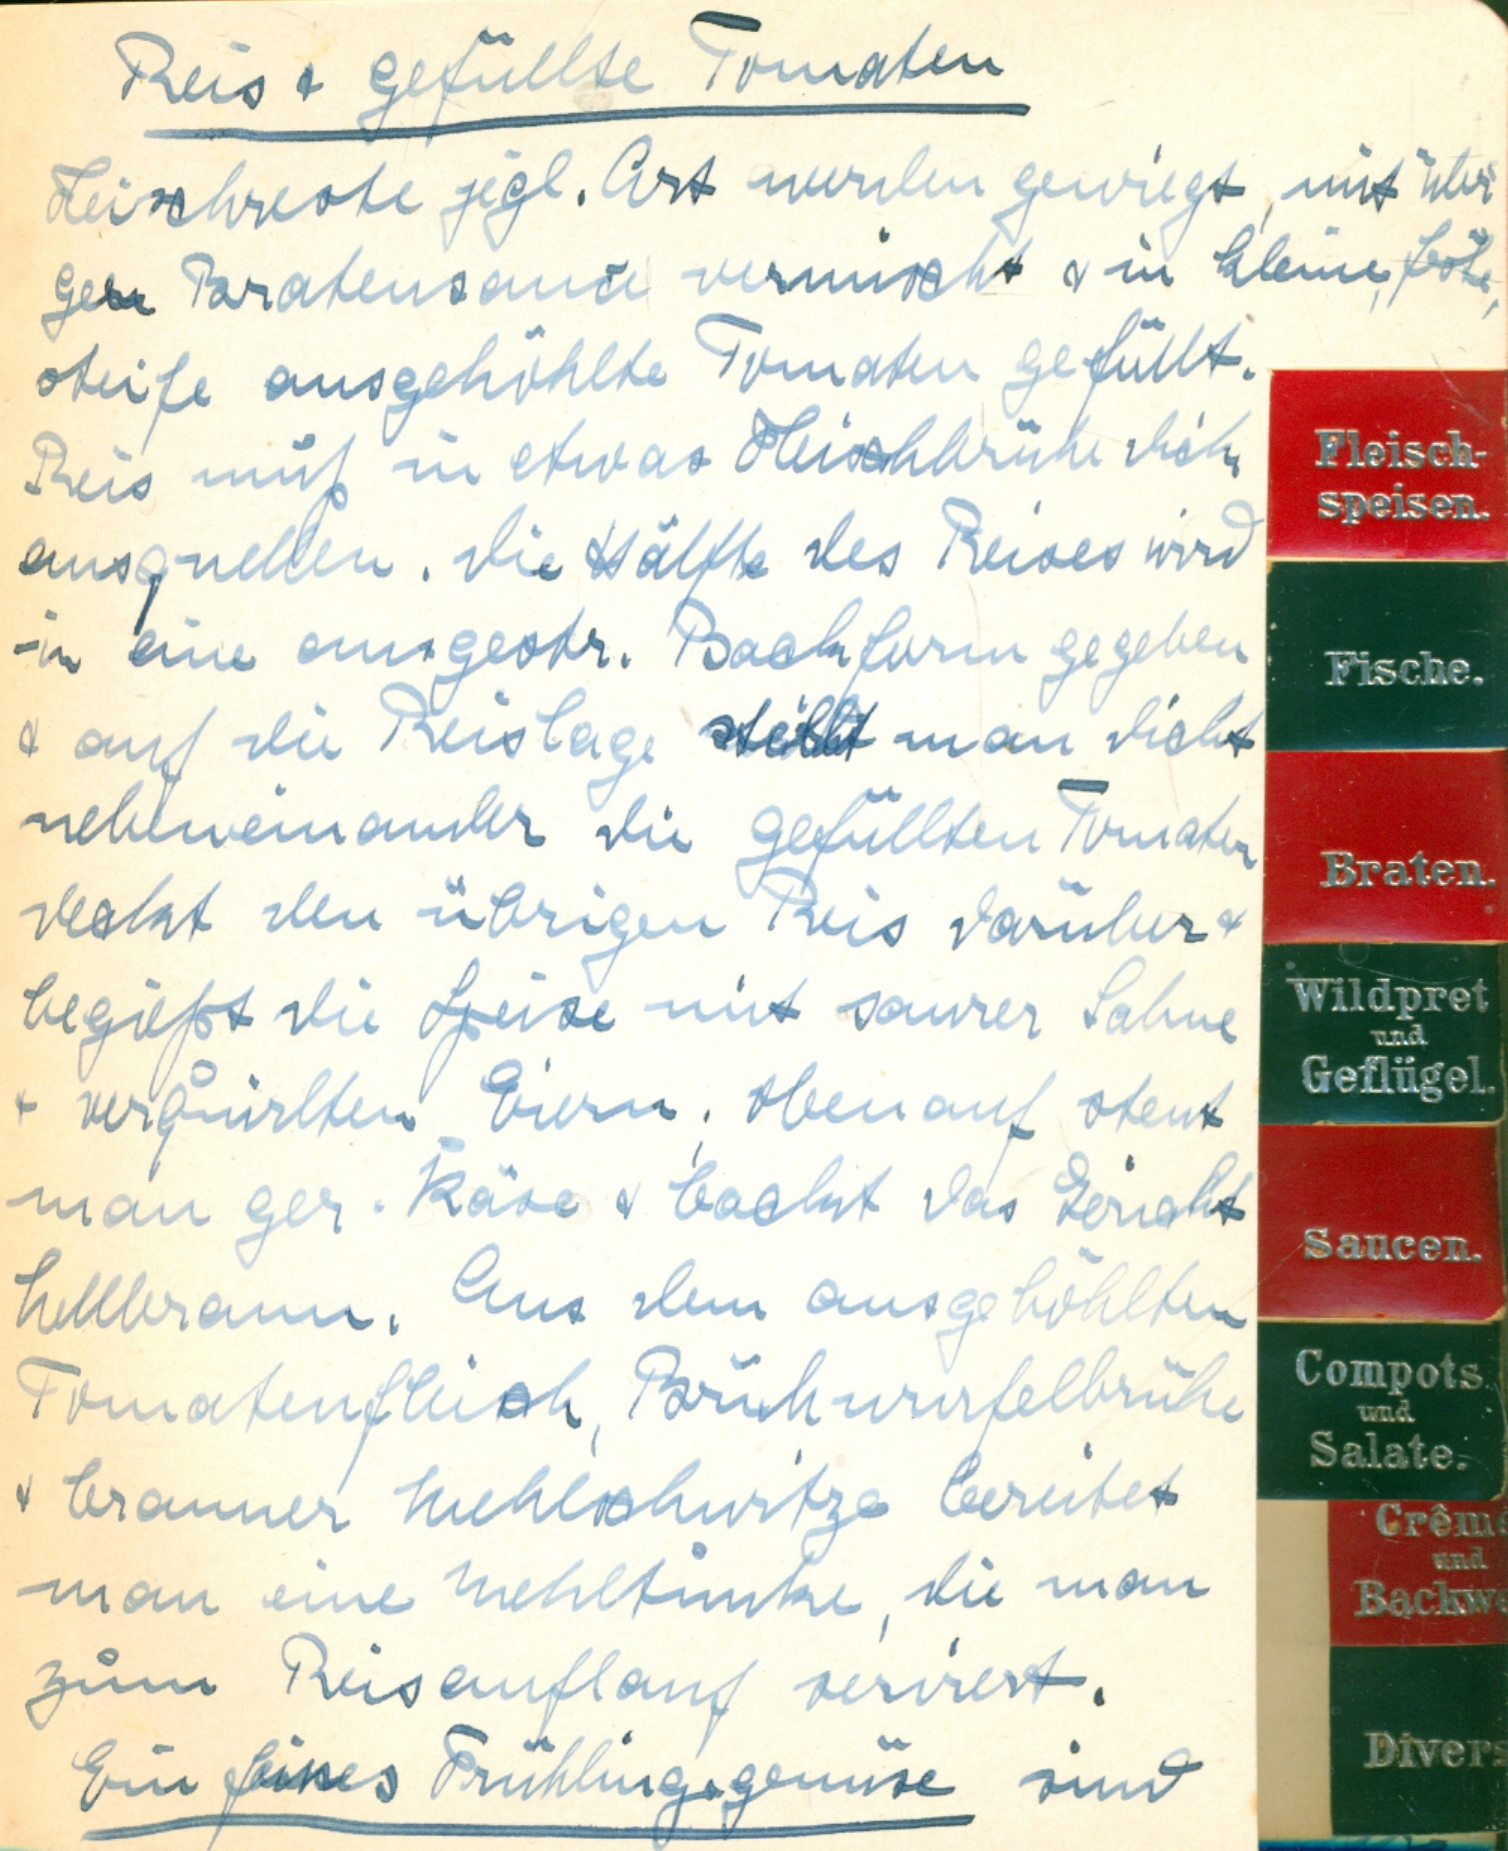 Reis & gefüllte Tomaten
Fleischreste jegl. Art werden gewiegt, mit übri
gen Bratensauce vermischt & in kleine,
steife ausgehöhlte Tomaten gefüllt.
Reis muß in etwas Fleischbrühe dick
ausquellen. Die Hälfte des Reises wird
in eine ausgestr. Backform gegeben
& auf die Reislage stellt man dicht
nebeneinander die gefüllten Tomaten
deckt den übrigen Reis darüber &
begießt die Speise mit saurer Sahne
& verquirlten Eiern, obenauf streut
man ger. Käse & backt das Gericht
hellbraun. Aus dem ausgehöhlten
Tomatenfleisch, Brühwürfelbrühe
& brauner Mehlschwitze bereitet
man eine Mehltunke, die man
zum Reisauflauf serviert.
Ein feines Frühlingsgemüse sind
Fleisch-
speisen.
Fische.
Braten.
Wildpret
und
Geflügel.
Saucen.
Compots
und
Salate.
Crême
und
Backwe
Divers